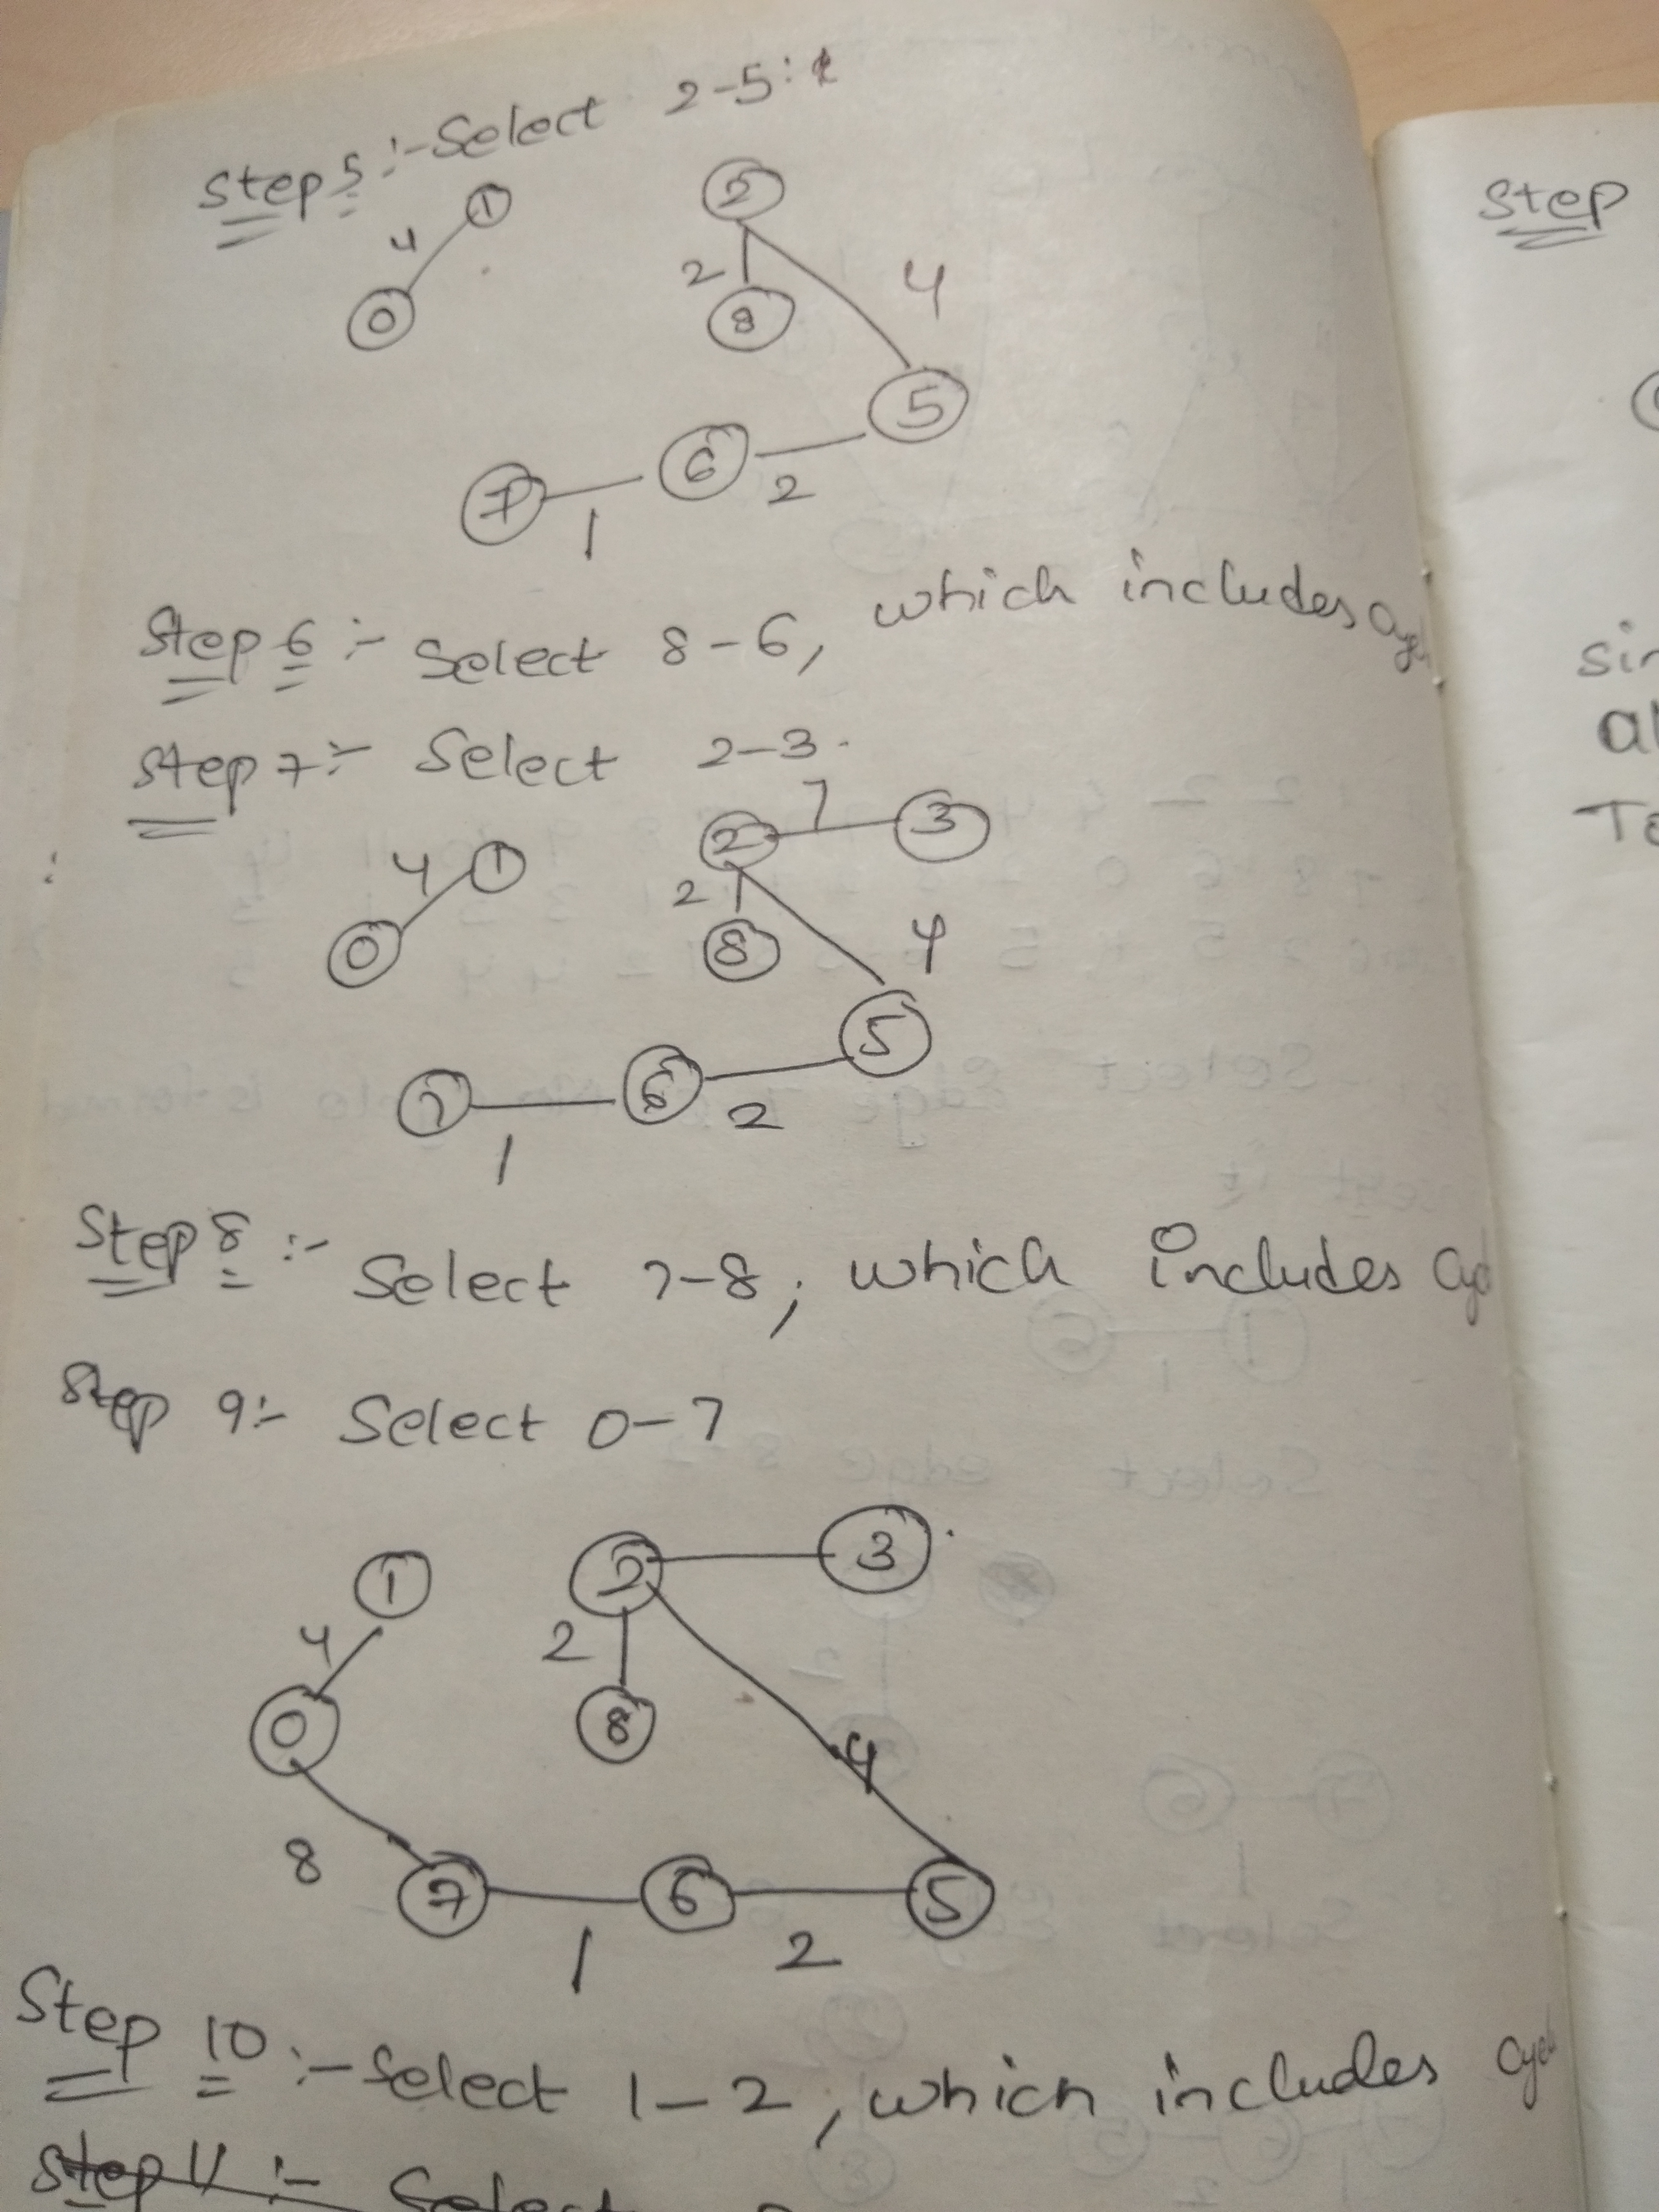 Step 5 :- Select 2-5:
1
4
0
2
2
8
4
5
6
2
7
1
Step 6 :- Select 8-6, which includes
Step 7 :- Select 2-3.
7
2
3
4
1
0
2
8
4
5
7
6
2
1
Step 8 :- Select 7-8; which includes
Step 9:- Select 0-7
1
2
3
4
2
0
8
4
8
7
6
5
1
2
Step 10 :- Select 1-2, which includes
Step 11 :- Select
Step